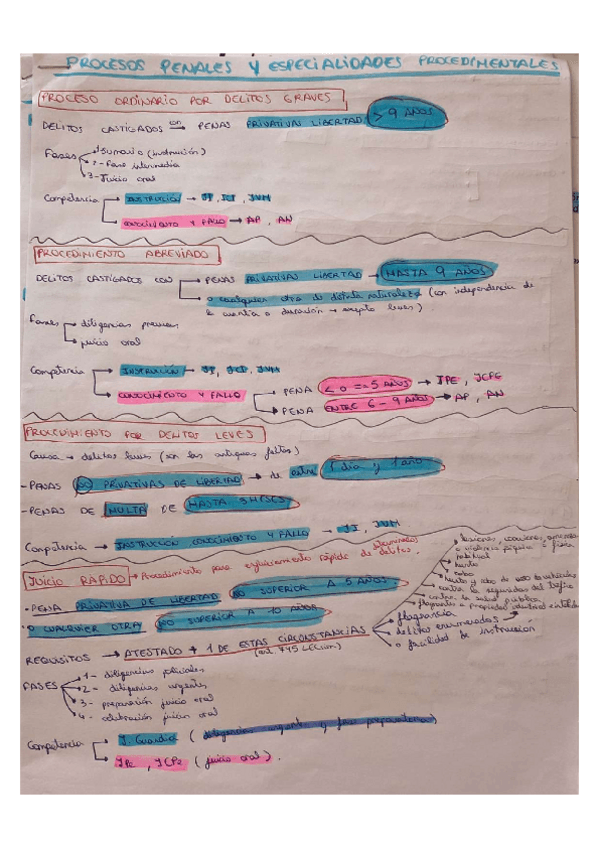 PROCESOS PENALES Y ESPECIALIDADES PROCEDIMENTALES
PROCESO ORDINARIO POR DELITOS GRAVES
DELITOS CASTIGADOS con PENAS PRIVATIVA LIBERTAD > 9 AÑOS
Fases
1-Sumario (instrucción)
2-Fase intermedia
3-Juicio oral
Competencia → INSTRUCCIÓN → JI, JCI, JVM
CONOCIMIENTO Y FALLO → AP, AN
PROCEDIMIENTO ABREVIADO
DELITOS CASTIGADOS CON → PENAS PRIVATIVAS LIBERTAD → HASTA 9 AÑOS
o cualquier otra de distinta naturaleza (con independencia de
la cuantía o duración → excepto leves)
Fases → diligencias previas
→ juicio oral
Competencia → INSTRUCCIÓN → JI, JCI, JVM
CONOCIMIENTO Y FALLO → PENA < o = 5 AÑOS → JPE, JCPE
→ PENA ENTRE 6 - 9 AÑOS → AP, AN
PROCEDIMIENTO POR DELITOS LEVES
Causa → delitos leves (son las antiguas faltas)
- PENAS NO PRIVATIVAS DE LIBERTAD → de entre 1 día y 1 año
- PENAS DE MULTA DE HASTA 3 MESES
Competencia → INSTRUCCIÓN CONOCIMIENTO Y FALLO → JI, JVM
JUICIO RÁPIDO → Procedimiento para enjuiciamiento rápido de determinados delitos.
- PENA PRIVATIVA DE LIBERTAD NO SUPERIOR A 5 AÑOS
- o CUALQUIER OTRA NO SUPERIOR A 10 AÑOS
REQUISITOS → ATESTADO + 1 DE ESTAS CIRCUNSTANCIAS
(art. 795 LECrim)
flagrancia
delitos enumerados
o facilidad de instrucción
lesiones, coacciones, amenazas
o violencia psíquica o física
habitual
hurto
robo
hurto y robo de uso de vehículos
contra la seguridad del tráfico
contra la salud pública
flagrantes → propiedad intelectual e industrial
FASES
1- diligencias policiales
2- diligencias urgentes
3- preparación juicio oral
4- celebración juicio oral
Competencia → J. Guardia (diligencias urgentes y fase preparatoria)
→ JPe, JCPe (juicio oral).